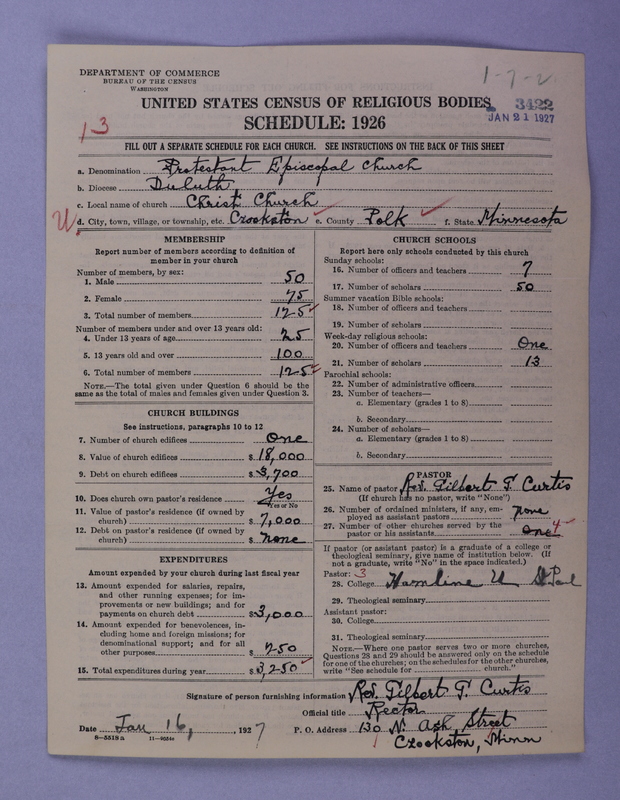 DEPARTMENT OF COMMERCE
BUREAU OF THE CENSUS
WASHINGTON
1-7-2
3422
JAN 21 1927
UNITED STATES CENSUS OF RELIGIOUS BODIES
SCHEDULE: 1926
13
FILL OUT A SEPARATE SCHEDULE FOR EACH CHURCH. SEE INSTRUCTIONS ON THE BACK OF THIS SHEET
a. Denomination Protestant Episcopal Church
b. Diocese Duluth
c. Local name of church Christ Church
d. City, town, village, or township, etc. Crookston e. County Polk f. State Minnesota
MEMBERSHIP
Report number of members according to definition of
member in your church
Number of members, by sex:
1. Male 50
2. Female 75
3. Total number of members 125
Number of members under and over 13 years old:
4. Under 13 years of age 25
5. 13 years old and over 100
6. Total number of members 125
NOTE.—The total given under Question 6 should be the
same as the total of males and females given under Question 3.
CHURCH BUILDINGS
See instructions, paragraphs 10 to 12
7. Number of church edifices One
8. Value of church edifices $ 18,000
9. Debt on church edifices $ 3,700
10. Does church own pastor's residence Yes
Yes or No
11. Value of pastor's residence (if owned by
church) $ 7,000
12. Debt on pastor's residence (if owned by
church) $ none
EXPENDITURES
Amount expended by your church during last fiscal year
13. Amount expended for salaries, repairs,
and other running expenses; for im-
provements or new buildings; and for
payments on church debt $ 3,000
14. Amount expended for benevolences, in-
cluding home and foreign missions; for
denominational support; and for all
other purposes $ 250
15. Total expenditures during year $ 3,250
CHURCH SCHOOLS
Report here only schools conducted by this church
Sunday schools:
16. Number of officers and teachers 7
17. Number of scholars 50
Summer vacation Bible schools:
18. Number of officers and teachers
19. Number of scholars
Week-day religious schools:
20. Number of officers and teachers One
21. Number of scholars 13
Parochial schools:
22. Number of administrative officers
23. Number of teachers—
a. Elementary (grades 1 to 8)
b. Secondary
24. Number of scholars—
a. Elementary (grades 1 to 8)
b. Secondary
PASTOR
25. Name of pastor Rev. Filbert F. Curtis
(If church has no pastor, write "None")
26. Number of ordained ministers, if any, em-
ployed as assistant pastors none
27. Number of other churches served by the
pastor or his assistants one 4
If pastor (or assistant pastor) is a graduate of a college or
theological seminary, give name of institution below. (If
not a graduate, write "No" in the space indicated.)
Pastor: 3
28. College Hamline U St Paul
29. Theological seminary
Assistant pastor:
30. College
31. Theological seminary
NOTE.—Where one pastor serves two or more churches,
Questions 28 and 29 should be answered only on the schedule
for one of the churches; on the schedules for the other churches,
write "See schedule for church."
Signature of person furnishing information Rev. Filbert F. Curtis
Official title Rector
Date Jan 16, 1927 P. O. Address 130 N. Ash Street
8—5518a 11—9034a Crookston, Minn